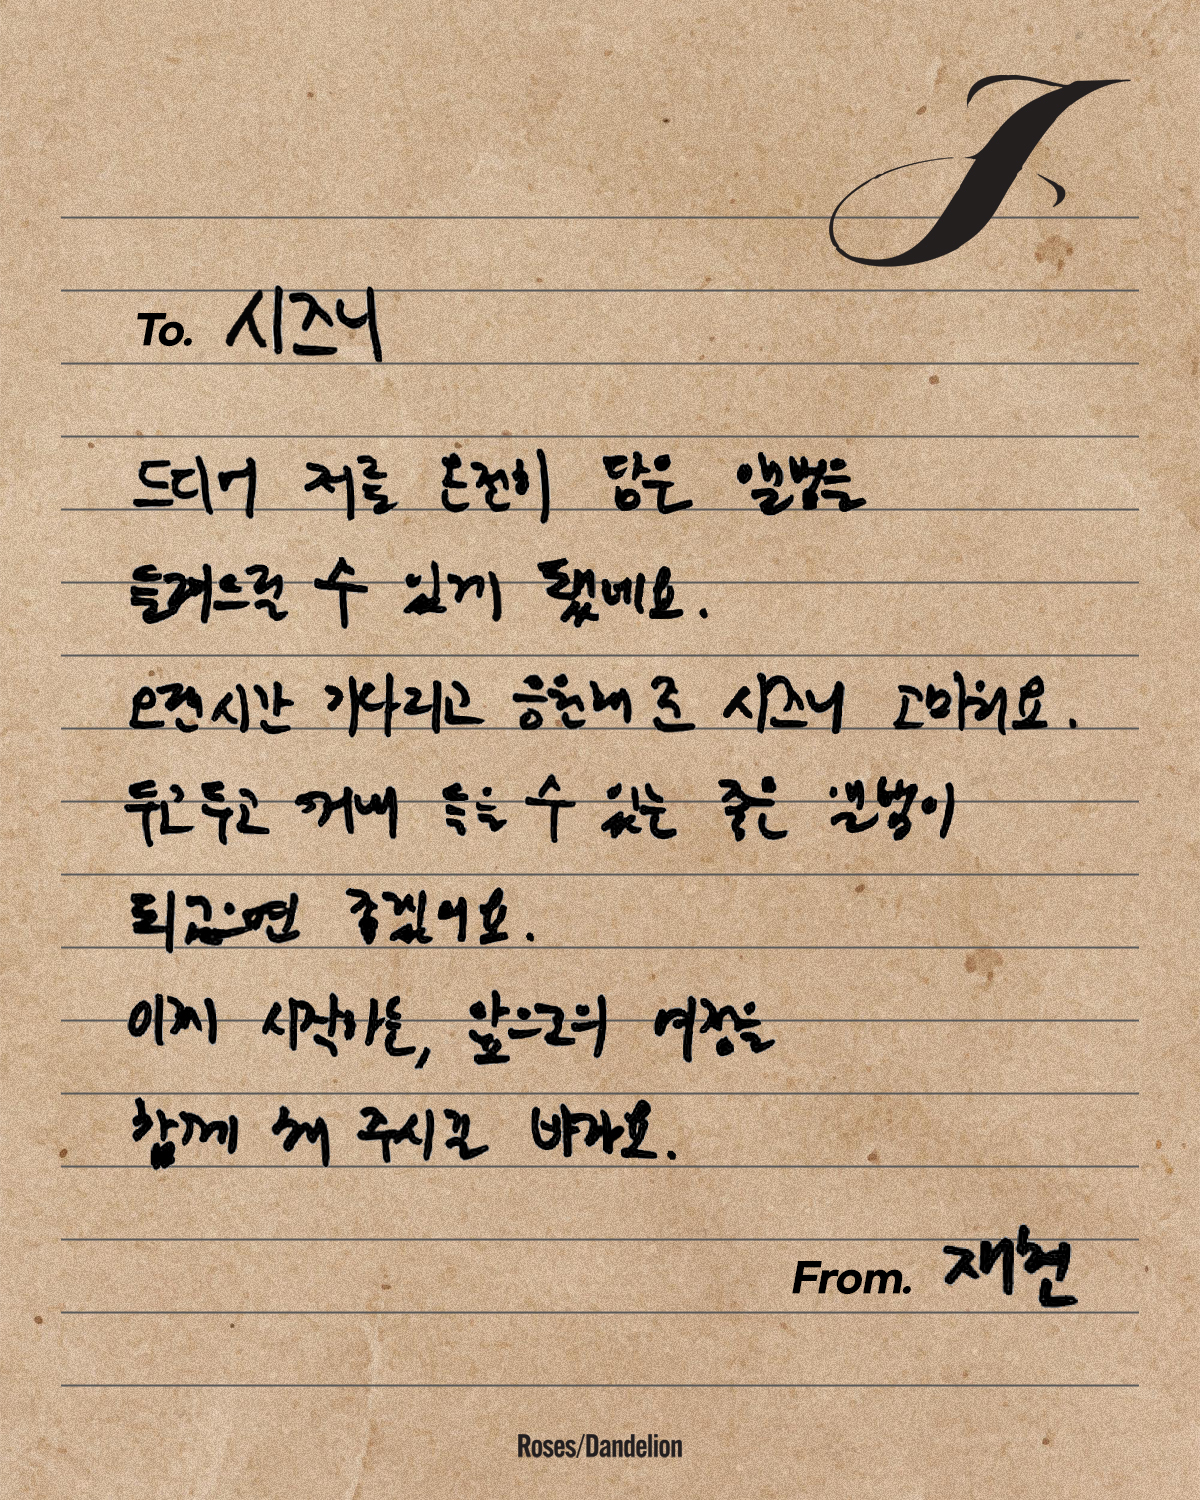 J
To. 시즈니
드디어 저를 온전히 담은 앨범을
들려드릴 수 있게 됐네요.
오랜시간 기다리고 응원해 준 시즈니 고마워요.
두고두고 꺼내 듣는 수 있는 좋은 앨범이
되었으면 좋겠어요.
이제 시작하는, 앞으로의 여정을
함께 해 주시길 바라요.
From. 재현
Roses/Dandelion